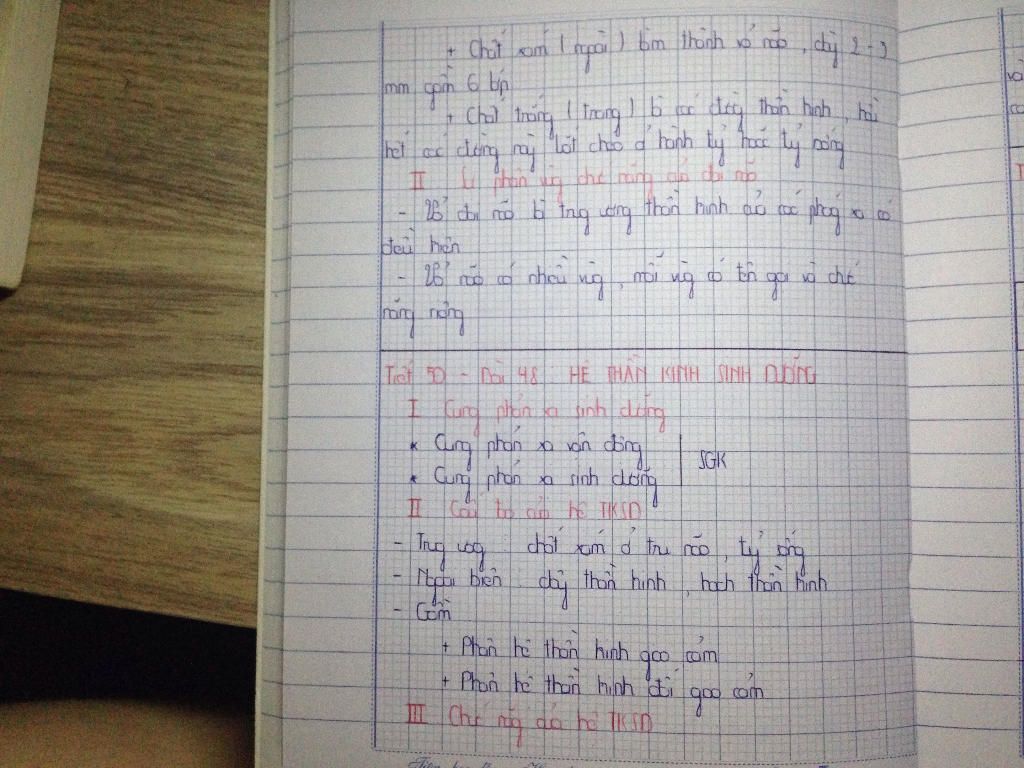 + Chất xám (ngoài) làm thành vỏ não, dày 2-3
mm gồm 6 lớp
+ Chất trắng (trong) là các đường thần kinh, hầu
hết các đường này bắt chéo ở hành tuỷ hoặc tuỷ sống
II Sự phân vùng chức năng của đại não
- Vỏ đại não là trung ương thần kinh của các phản xạ có
điều kiện
- Vỏ não có nhiều vùng, mỗi vùng có tên gọi và chức
năng riêng
Tiết 50 - Bài 48: HỆ THẦN KINH SINH DƯỠNG
I Cung phản xạ sinh dưỡng
* Cung phản xạ vận động
SGK
* Cung phản xạ sinh dưỡng
II Cấu tạo của hệ TKSD
- Trung ương: chất xám ở trụ não, tuỷ sống
- Ngoại biên: dây thần kinh, hạch thần kinh
- Gồm
+ Phân hệ thần kinh giao cảm
+ Phân hệ thần kinh đối giao cảm
III Chức năng của hệ TKSD